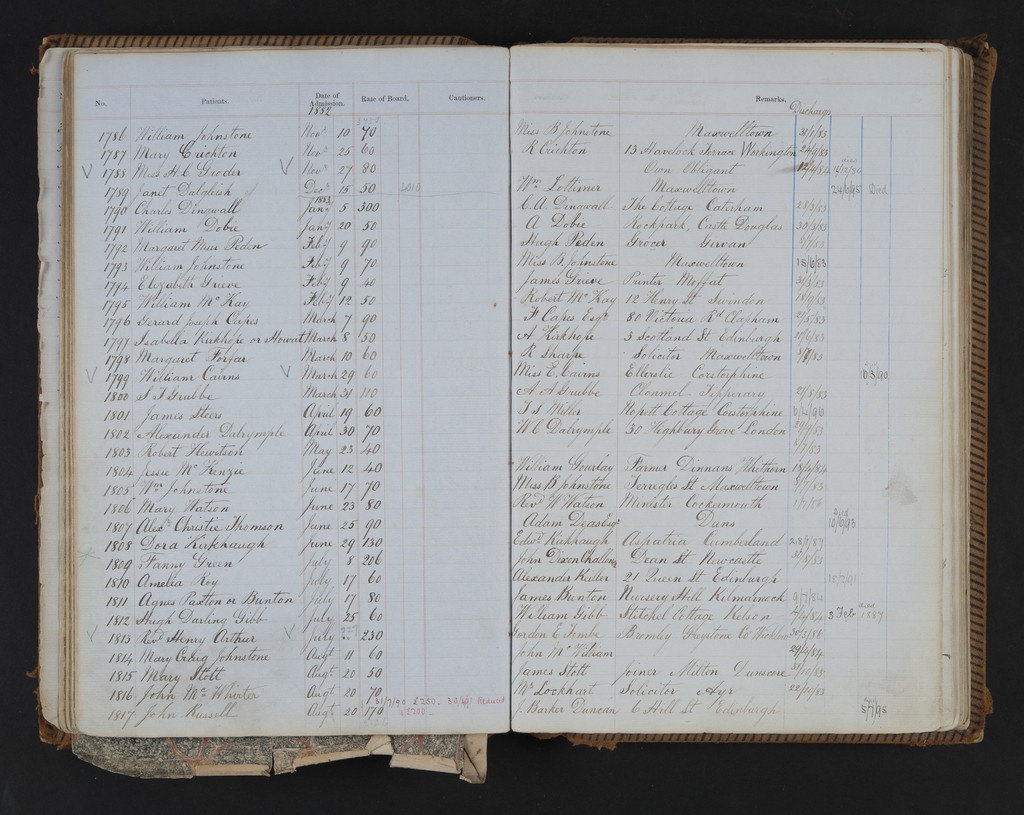 No. Patients. Date of Admission. Rate of Board. Cautioners. Remarks. Discharges
1882
1786 William Johnstone Novr 10 70 Miss B Johnstone Maxwelltown 31/1/83
1787 Mary Crichton Novr 25 60 R Crichton 13 Havelock Terrace Workington 24/9/83
1788 Miss H.C. Groder Novr 27 80 Own Obligant
1789 Janet Dalgleish Decr 15 50 Wm Lottimer Maxwelltown 24/6/95 Died
1883
1790 Charles Dingwall Jany 5 300 C. A. Dingwall The Cottage Caterham
1791 William Dobie Jany 20 50 A Dobie Rockpark, Castle Douglas 30/3/83
1792 Margaret Muir Peden Feby 9 90 Hugh Peden Grocer Girvan
1793 William Johnstone Feby 9 70 Miss B. Johnstone Maxwelltown 15/6/83
1794 Elizabeth Grieve Feby 9 40 James Grieve Printer Moffat
1795 William McKay Feby 12 50 Robert McKay 12 Henry St Swindon
1796 Gerard Joseph Capes March 7 90 F Capes Esqr 80 Victoria Rd Clapham
1797 Isabella Kirkhope or Howatt March 8 50 A Kirkhope 3 Scotland St Edinburgh
1798 Margaret Forfar March 10 60 R Sharpe Solicitor Maxwelltown
1799 William Cairns March 29 60 Miss E. Cairns Ellerslie Corstorphine 16/3/90
1800 S F Grubbe March 31 110 A. A Grubbe Clonmel Tipperary 21/8/83
1801 James Steers April 19 60 Cottage Corstorphine
1802 Alexander Dalrymple April 30 70 W C Dalrymple 30 Highbury Grove London
1803 Robert Hewitson May 23 40
1804 Jessie McKenzie June 12 40 William Gourlay Farmer Dinnans Whithorn 18/4/84
1805 Wm Johnstone June 17 70 Miss B Johnstone Terregles St Maxwelltown
1806 Mary Watson June 23 80 Revd W Watson Minister Cockermouth
1807 Alexr Christie Thomson June 25 90 Adam Deas Esqr Duns Died 10/6/93
1808 Dora Kirkhaugh June 29 130 Edwd Kirkhaugh Aspatria Cumberland 28/1/87
1809 Fanny Green July 8 206 John Dixon Dean St Newcastle
1810 Amelia Roy July 17 60 Alexander Keiller 21 Queen St Edinburgh
1811 Agnes Paxton or Bunton July 17 80 James Bunton Nursery Hill Kilmarnock 9/7/84
1812 Hugh Darling Gibb July 25 60 William Gibb Stitchel Cottage Kelso 3 Feb died 1887
1813 Revd Henry Arthur July 230 Gordon E Tombe Bromley Greystone Co Wicklow 30/3/86
1814 Mary Craig Johnstone Augt 11 60 John McWilliam 29/4/84
1815 Mary Stott Augt 20 50 James Stott Joiner Milton Dunscore
1816 John McWhirter Augt 20 70 Mr Lockhart Solicitor Ayr 22/10/83
31/7/90 £250. Reduced
1817 John Russell Augt 20 170 J. Barker Duncan 6 Hill St Edinburgh 5/7/95